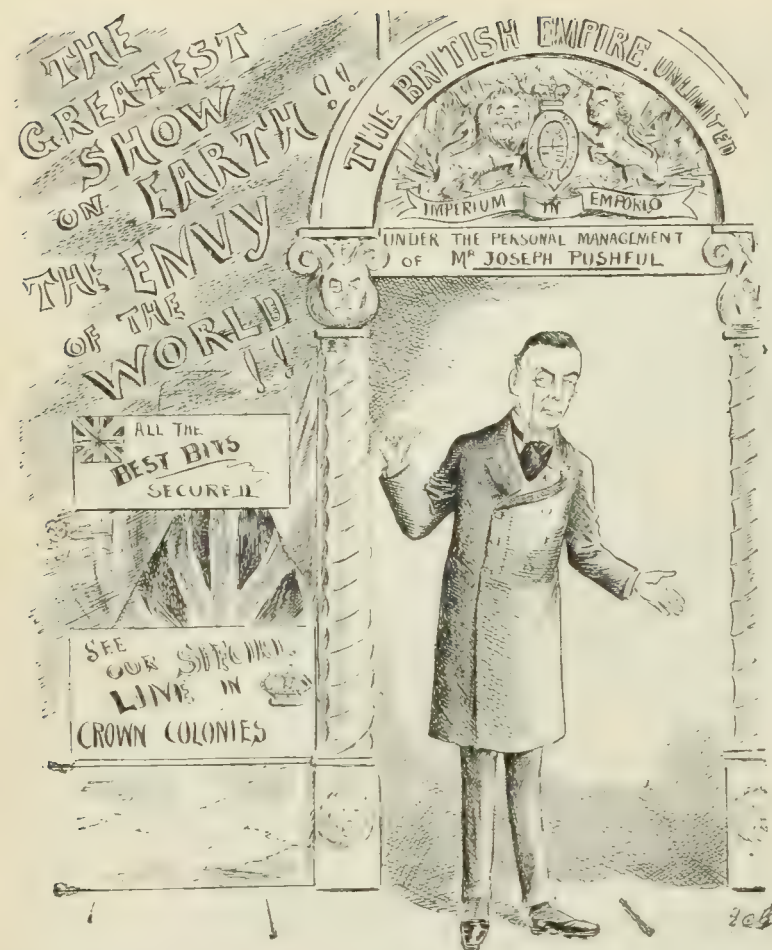 THE
GREATEST
SHOW
ON EARTH!!
THE ENVY
OF THE
WORLD
!!
THE BRITISH EMPIRE. UNLIMITED
IMPERIUM IN EMPORIO
UNDER THE PERSONAL MANAGEMENT
OF MR JOSEPH PUSHFUL
ALL THE
BEST BITS
SECURED
SEE
OUR SPECIAL
LINE IN
CROWN COLONIES